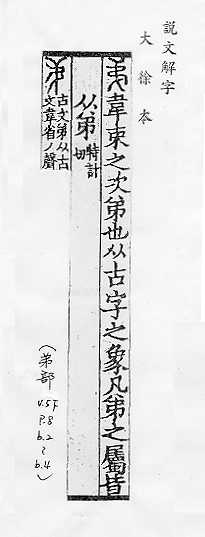 說文解字
大徐本
弟韋束之次弟也从古字之象凡弟之屬皆
从弟特計
切
古文弟从古
文韋省丿聲
(弟部
V.5下
P.8
b.2
~
b.4)